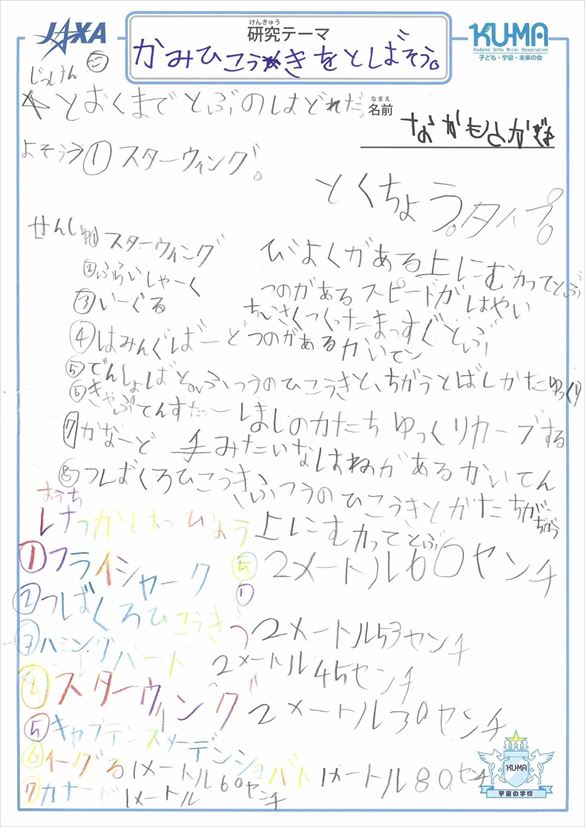 JAXA
けんきゅう
研究テーマ
かみひこうきをとばそう。
KU-MA
Kodomo Uchu Mirai Association
子ども・宇宙・未来の会
じっけん
とおくまでとぶのはどれだ。
なまえ
名前
なかもと
よそう ① スターウィング。
とくちょう。タイプ。
せんしゅ ① スターウィング びよくがある上にむかってとぶ
② ふらいしゃーく つのがあるスピードがはやい
③ いーぐる ちいさくつくったまっすぐとぶ
④ はみんぐばーど つのがあるかいてん
⑤ でんしょばと ふつうのひこうきと、ちがうとばしかたゆっくり
⑥ きゃぷてんすたー ほしのかたち ゆっくりカーブする
⑦ かなーど みたいなはねがあるかいてん
⑧ つばくろひこうき ふつうのひこうきとかたちがちがう
上にむかってとぶ
おうち
けっかはっぴょう
① フライシャーク 2メートル60センチ
② つばくろひこうき 2メートル53センチ
③ ハミングバード 2メートル45センチ
④ スターウィング 2メートル30センチ
⑤ キャプテンスター デンショバト 1メートル80センチ
⑥ イーグる 1メートル60センチ
⑦ カナード 1メートル
KU-MA
宇宙の学校